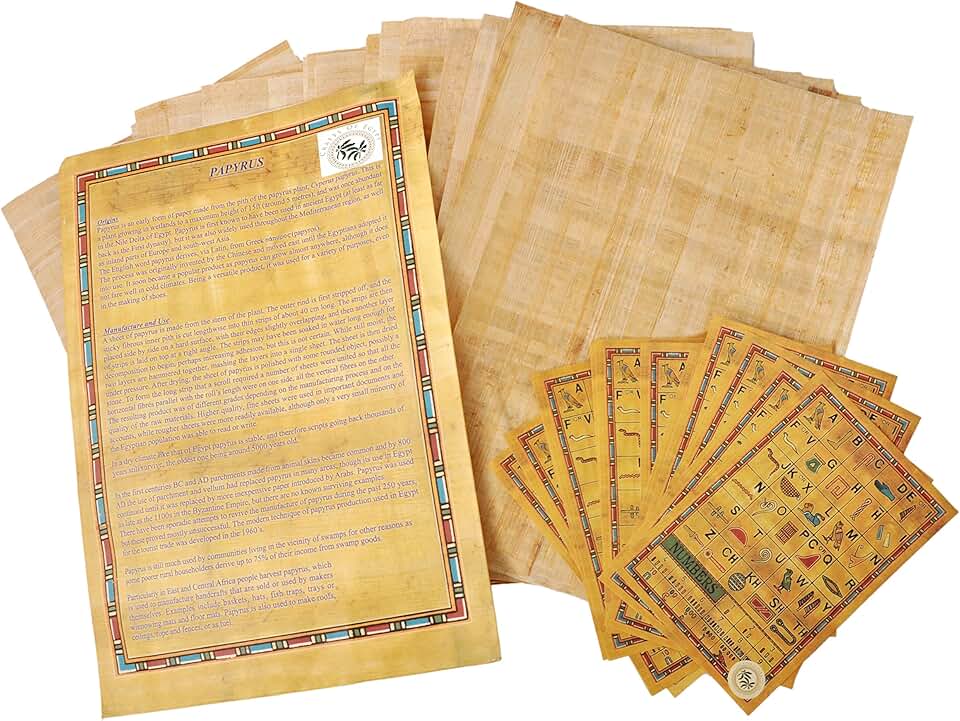 CRAFTS OF EGYPT
PAPYRUS
Origins
Papyrus is an early form of paper made from the pith of the papyrus plant, Cyperus papyrus. This is
a plant growing in wetlands to a maximum height of 15ft (around 5 metres), and was once abundant
in the Nile Delta of Egypt. Papyrus is first known to have been used in ancient Egypt (at least as far
back as the First dynasty), but it was also widely used throughout the Mediterranean region, as well
as inland parts of Europe and south-west Asia.
The English word papyrus derives, via Latin, from Greek (papyros).
The process was originally invented by the Chinese and moved east until the Egyptians adopted it
into use. It soon became a popular product as papyrus can grow almost anywhere, although it does
not fare well in cold climates. Being a versatile product, it was used for a variety of purposes, even
in the making of shoes.
Manufacture and Use
A sheet of papyrus is made from the stem of the plant. The outer rind is first stripped off, and the
sticky fibrous inner pith is cut lengthwise into thin strips of about 40 cm long. The strips are then
placed side by side on a hard surface, with their edges slightly overlapping, and then another layer
of strips is laid on top at a right angle. The strips may have been soaked in water long enough for
decomposition to begin, perhaps increasing adhesion, but this is not certain. While still moist, the
two layers are hammered together, mashing the layers into a single sheet. The sheet is then dried
under pressure. After drying, the sheet of papyrus is polished with some rounded object, possibly a
stone. To form the long strip that a scroll required a number of sheets were united so that all the
horizontal fibres parallel with the roll's length were on one side, all the vertical fibres on the other.
The resulting product was of different grades depending on the manufacturing process and on the
quality of the raw materials. Higher quality, fine sheets were used in important documents and
accounts, while rougher sheets were more readily available, although only a very small minority of
the Egyptian population was able to read or write.
In a dry climate like that of Egypt papyrus is stable, and therefore scripts going back thousands of
years still survive, the oldest one being around 5000 years old.
In the first centuries BC and AD parchments made from animal skins became common and by 800
AD the use of parchment and vellum had replaced papyrus in many areas, though its use in Egypt
continued until it was replaced by more inexpensive paper introduced by Arabs. Papyrus was used
as late as the 1100s in the Byzantine Empire, but there are no known surviving examples
There have been sporadic attempts to revive the manufacture of papyrus during the past 250 years,
but these proved mostly unsuccessful. The modern technique of papyrus production used in Egypt
for the tourist trade was developed in the 1960's.
Papyrus is still much used by communities living in the vicinity of swamps for other reasons as
some poorer rural householders derive up to 75% of their income from swamp goods.
Particularly in East and Central Africa people harvest papyrus, which
is used to manufacture handcrafts that are sold or used by makers
themselves. Examples include baskets, hats, fish traps, trays or
winnowing mats and floor mats. Papyrus is also used to make roofs,
ceilings, rope and fences, or as fuel.
A B C DE
F V G H
K X L M N
S
Z CH
KH
SH
NUMBERS